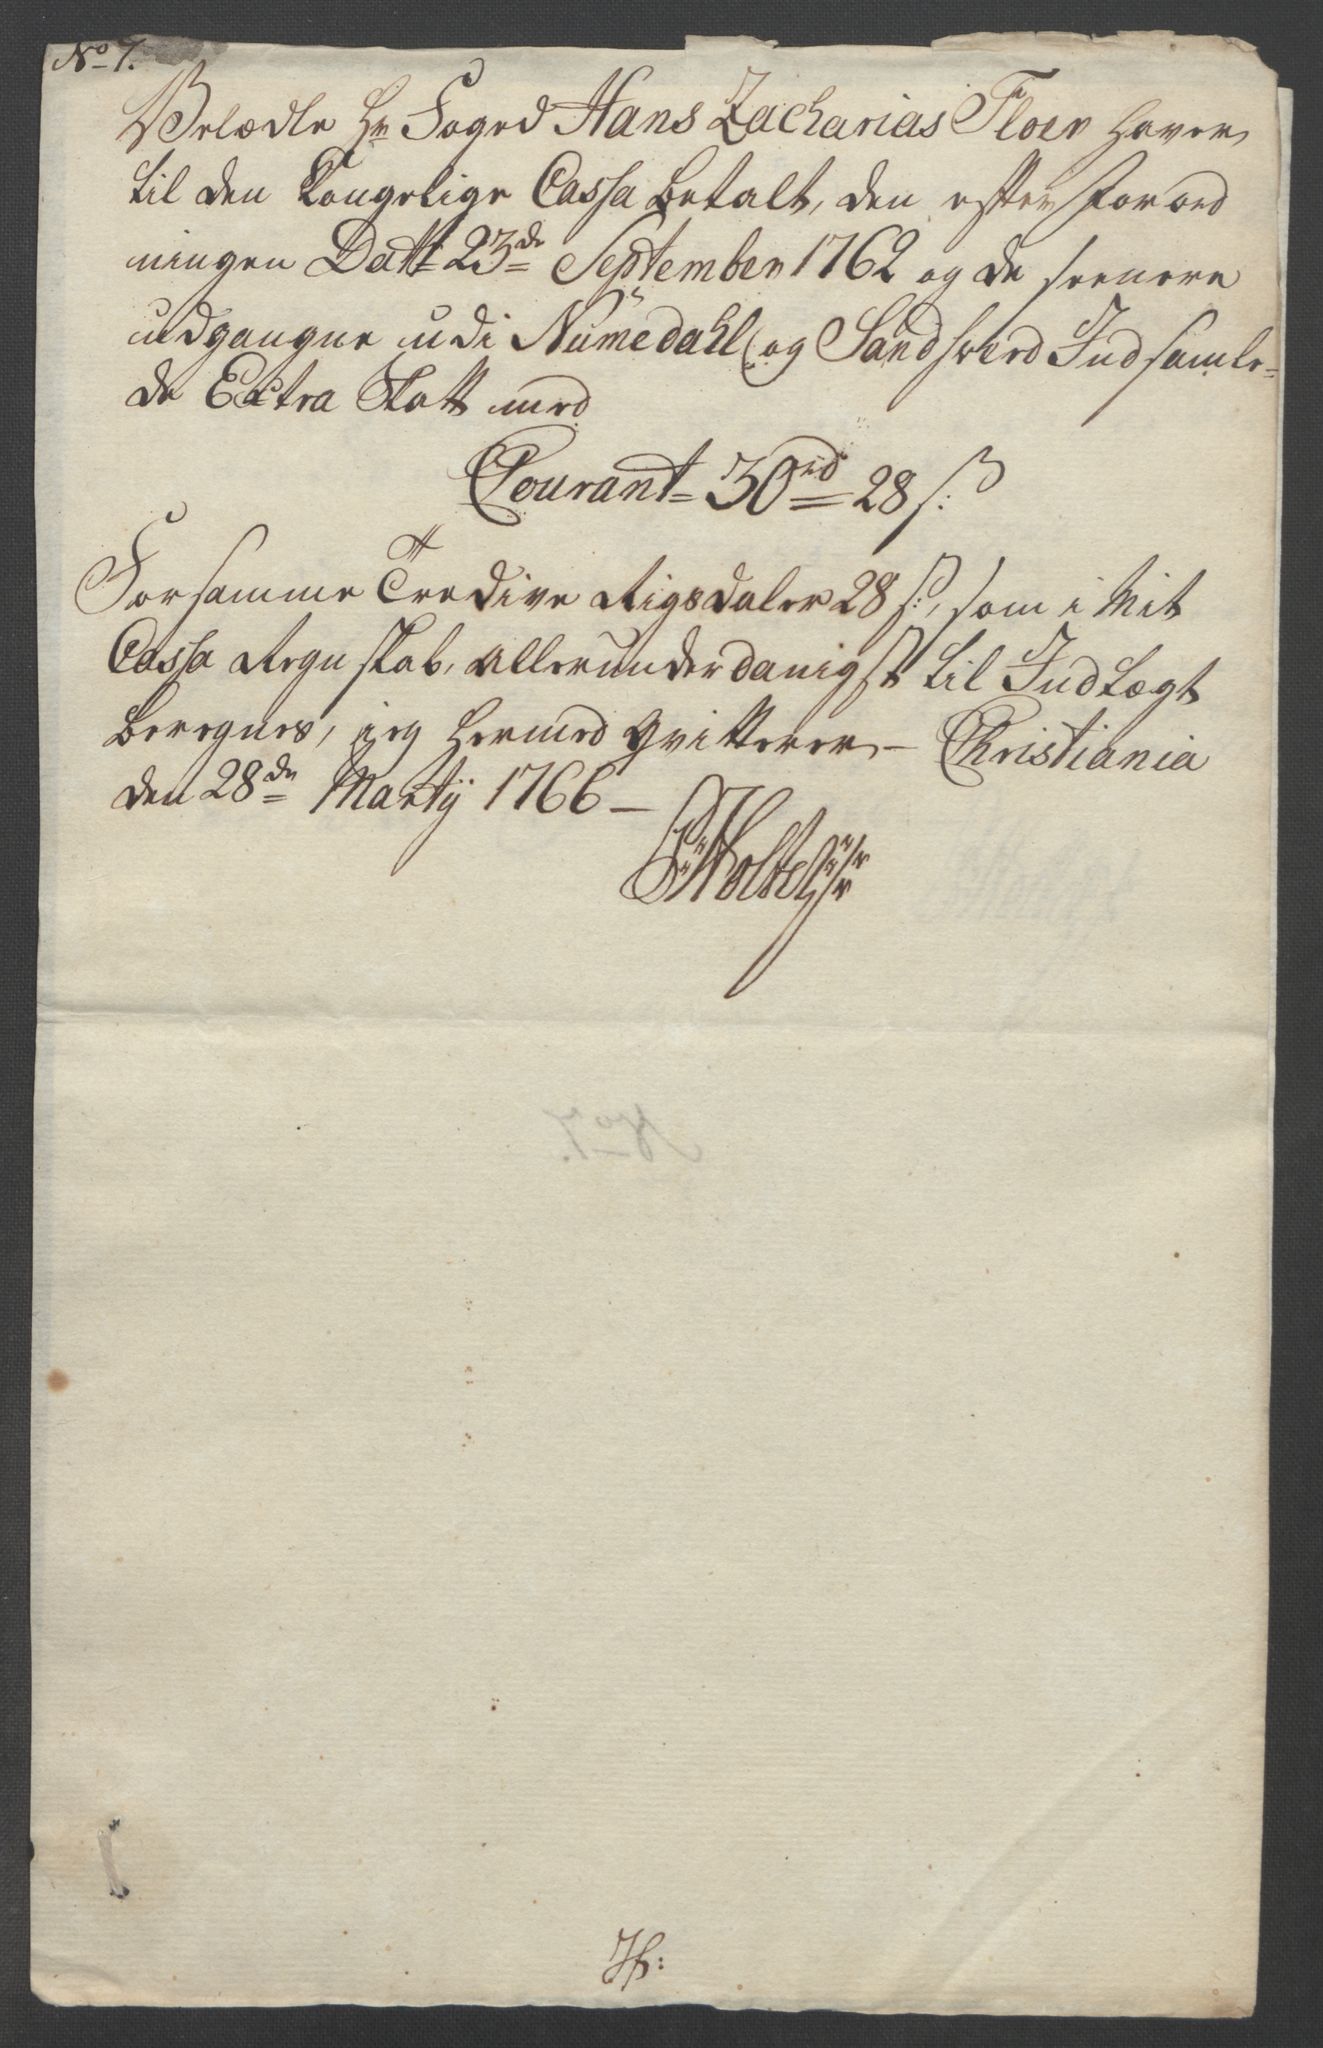 No 7.
Velædle Hr Foged Hans Zacharias Floer haver
til den Kongelige Cassa betalt, den efter Forord
ningen Datt 23de September 1762 og de seenere
udgangne udi Numedahl og Sandsverd Indsamle=
de Extra Skatt med
Courant 30rd 28 s:
For samme Tredive Rigsdaler 28 s:, som i Mit
Cassa Regnskab, allerunderdanigst til Indtægt
beregnes, jeg hermed qvitterer, - Christiania
den 28de Martij 1766 -